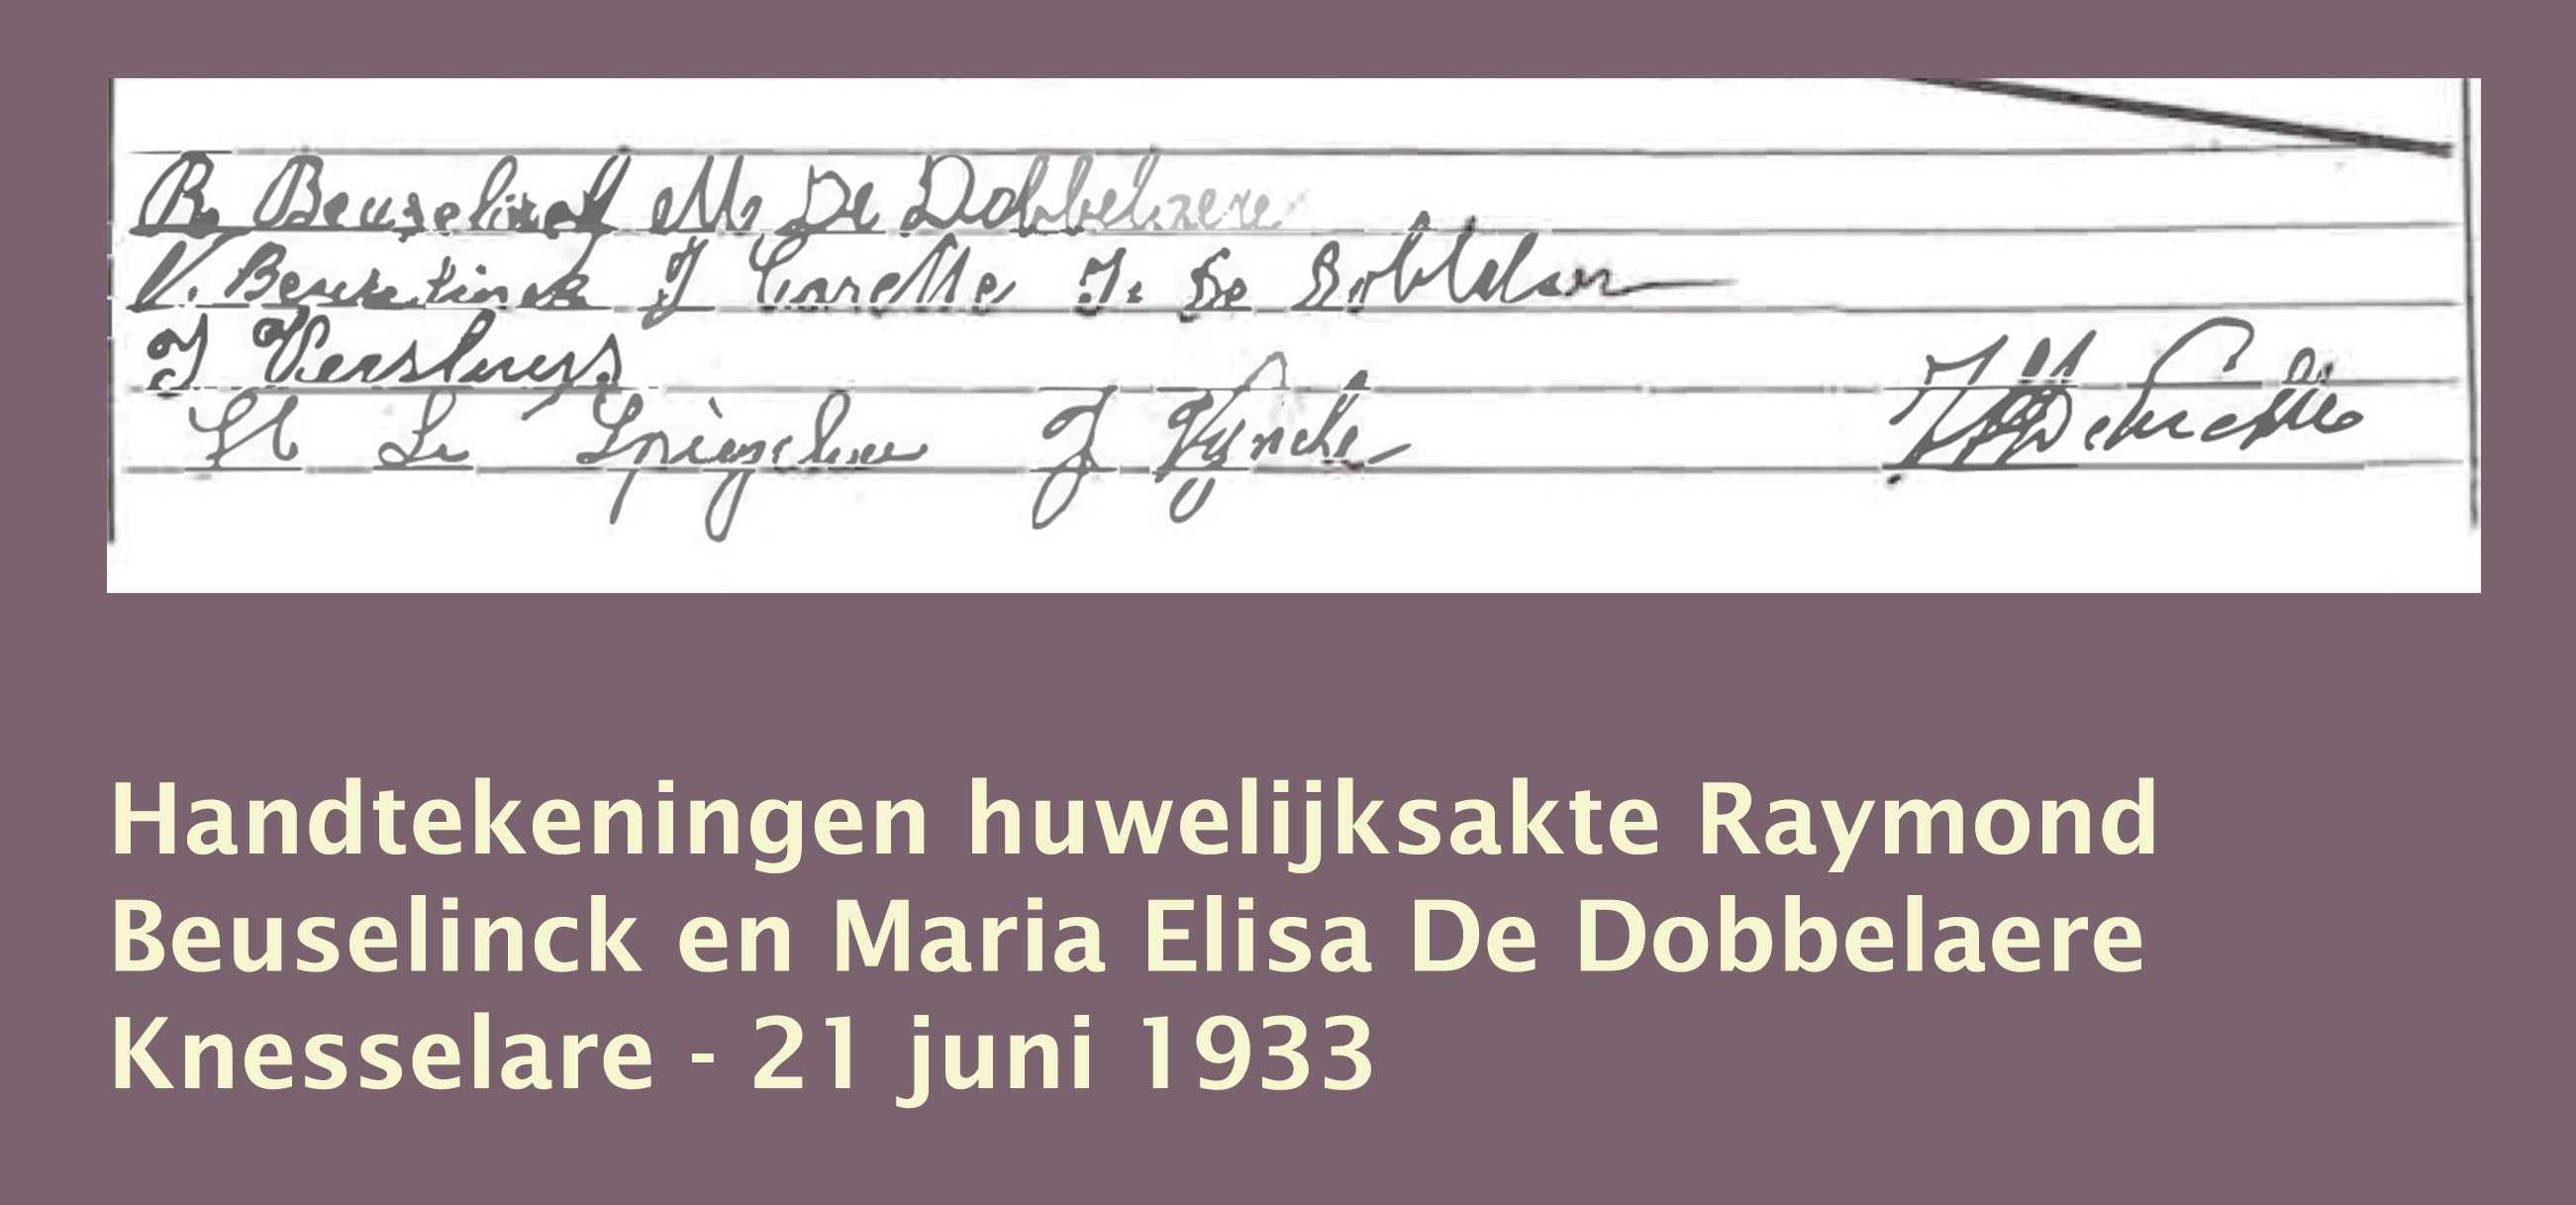 R. Beuselinck M. De Dobbelaere
V. Beuselinck J Carette J. De Dobbelaer
J Versluys
De J Vyncke
Handtekeningen huwelijksakte Raymond
Beuselinck en Maria Elisa De Dobbelaere
Knesselare - 21 juni 1933